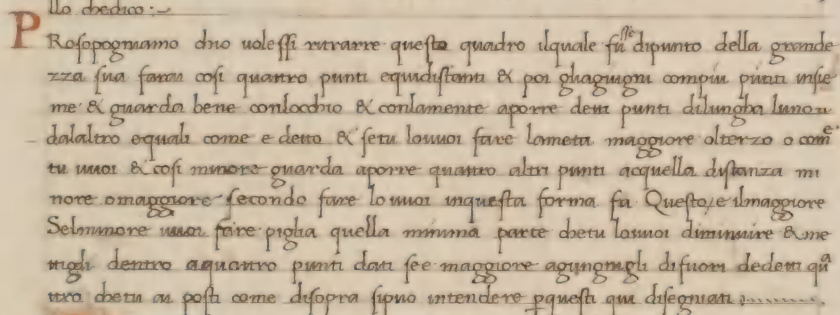 llo chedico :~
PRosopognamo chio volessi ritrarre questo quadro ilquale fusse dipunto della grande
zza sua farai cosi quattro punti equidistanti & poi glagiugni compiu punti insie
me & guarda bene conlocchio & conlamente aporre detti punti dilungha luno
dalaltro equali come e detto & setu louuoi fare lameta maggiore olterzo o come
tu uuoi & cosi minore guarda aporre quattro altri punti acquella distanza mi
nore omaggiore secondo fare lo uuoi inquesta forma fa Questo/e ilmaggiore
Selminore uuoi faire piglia quella minima parte chetu louuoi diminuire & me
ttigli dentro aquattro punti dati see maggiore agiungnigli difuori dedetti qua
ttro chetu ai posti come disopra sipuo intendere pquesti qui disegniati :.......